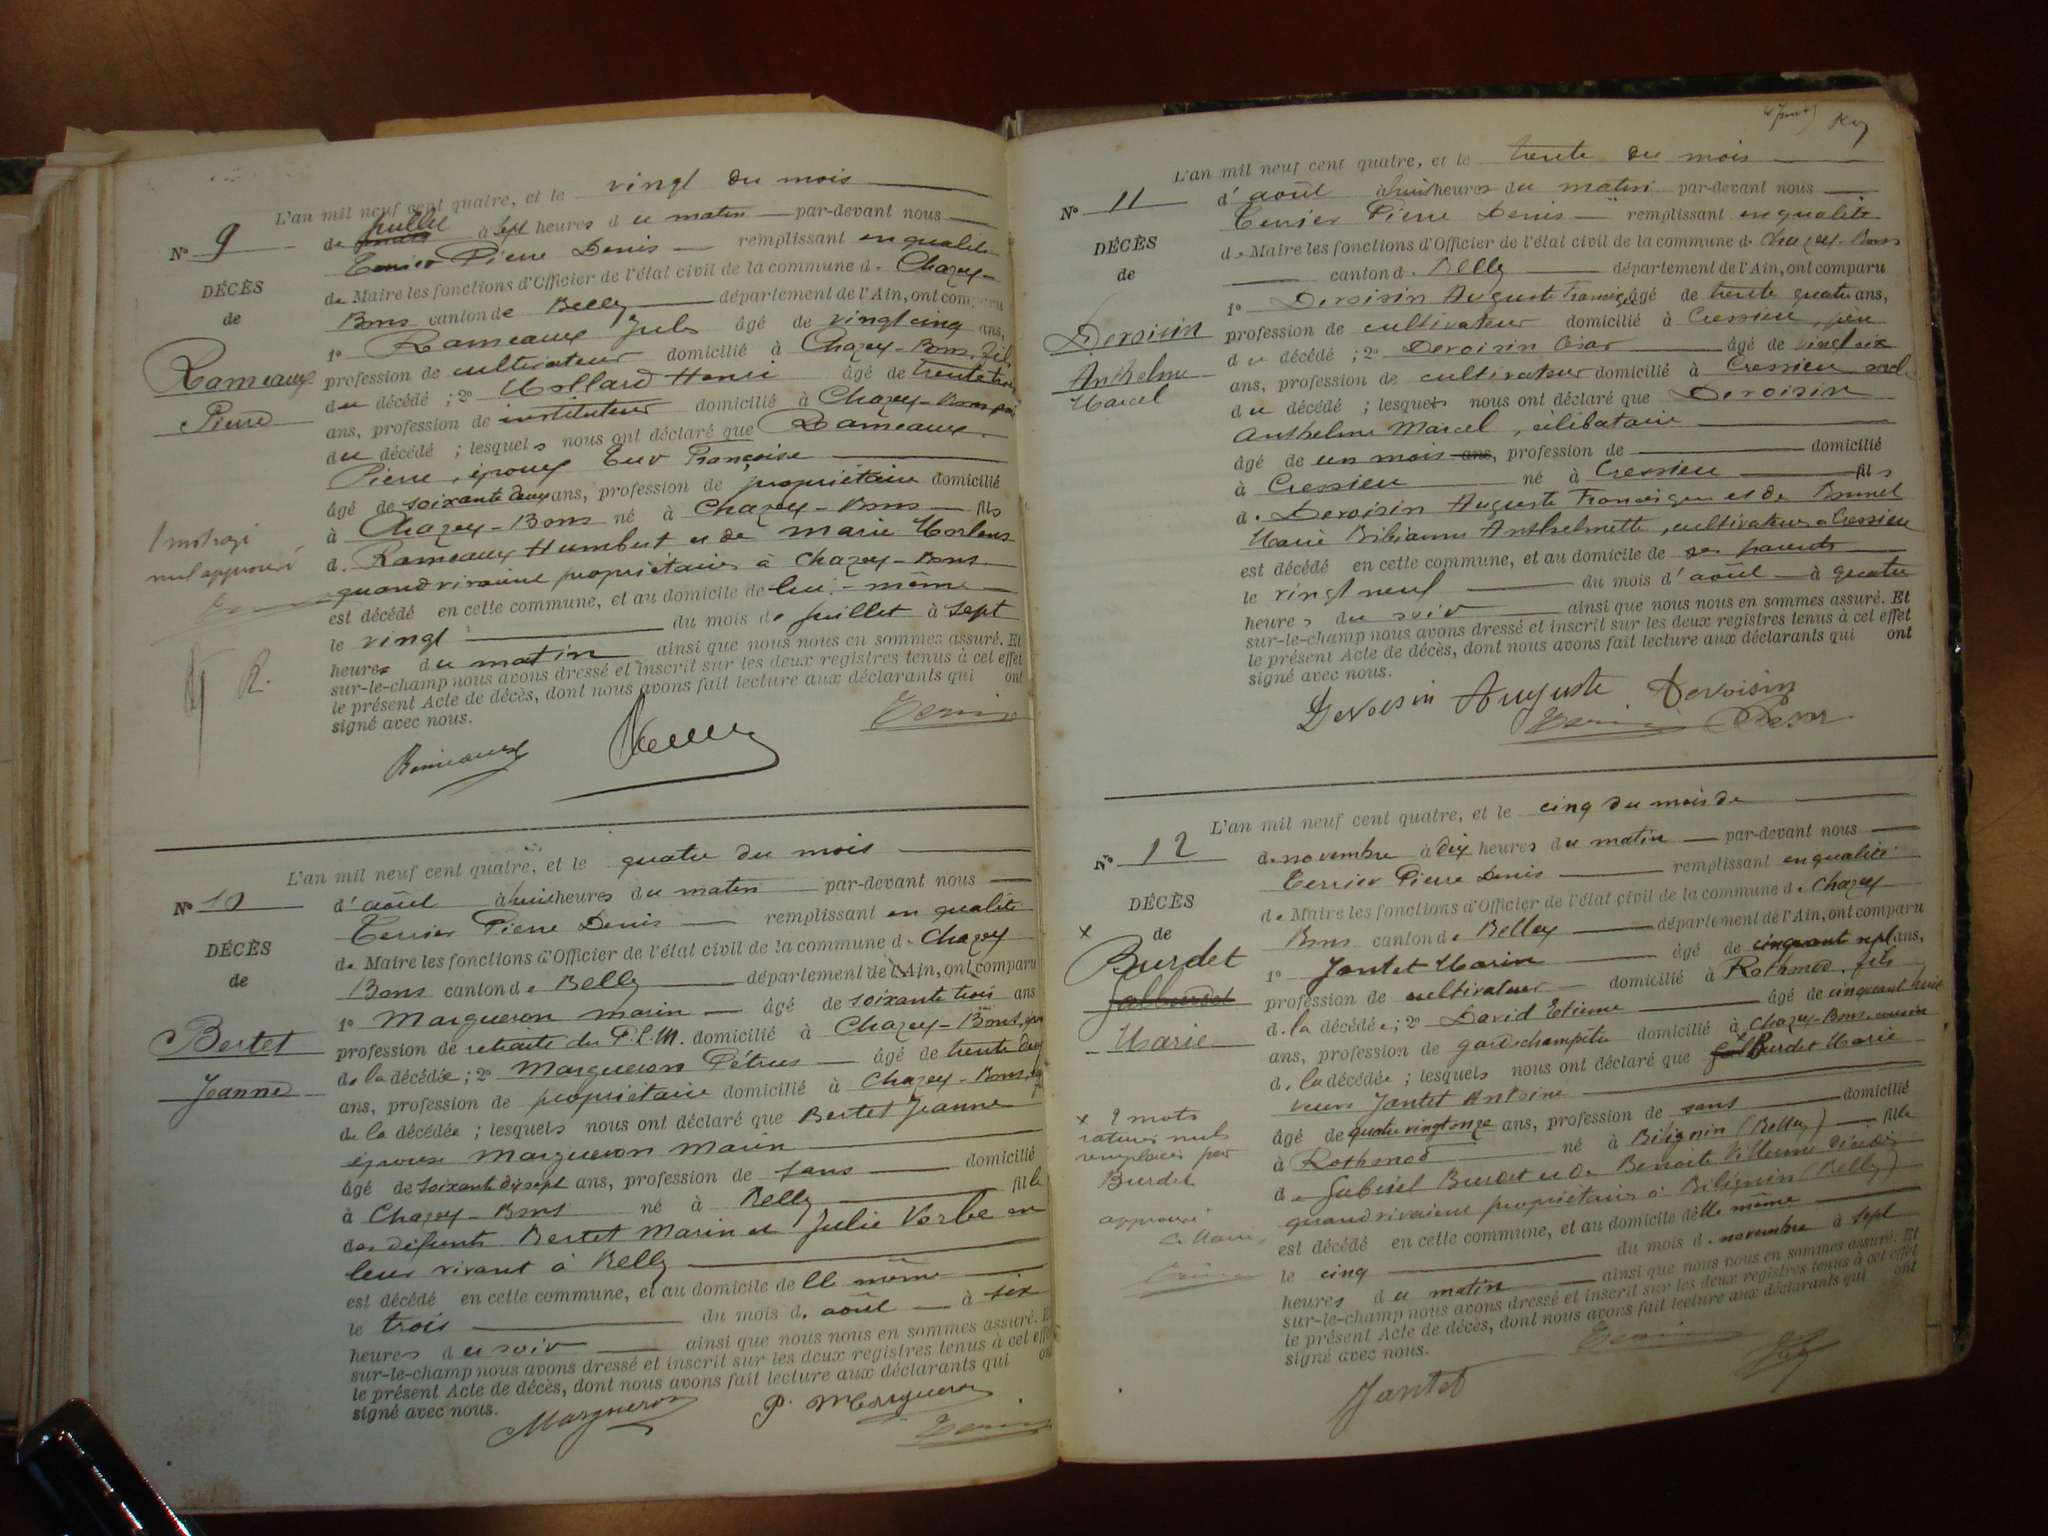 L'an mil neuf cent quatre, et le vingt du mois
Nº 9
de juillet à sept heures du matin par-devant nous
Terrier Pierre Denis remplissant en qualité
DÉCÈS
de Maire les fonctions d'Officier de l'état civil de la commune de Chazey-
de
Bons canton de Belley département de l'Ain, ont comparu
1º Rameaux Jules âgé de vingt cinq ans,
Rameaux
profession de cultivateur domicilié à Chazey-Bons, fils
Pierre
du décédé ; 2º Mollard Henri âgé de trente trois
ans, profession de instituteur domicilié à Chazey-Bons
du décédé ; lesquels nous ont déclaré que Rameaux
Pierre, époux Françoise
âgé de soixante deux ans, profession de propriétaire domicilié
à Chazey-Bons né à Chazey-Bons fils
1 mot rayé
nul approuvé
de Rameaux Humbert et de Marie
quand vivaient propriétaires à Chazey-Bons
est décédé en cette commune, et au domicile de lui-même
le vingt du mois de juillet à sept
heures du matin ainsi que nous nous en sommes assuré. Et
sur-le-champ nous avons dressé et inscrit sur les deux registres tenus à cet effet
le présent Acte de décès, dont nous avons fait lecture aux déclarants qui ont
signé avec nous.
Rameaux
Terrier
L'an mil neuf cent quatre, et le quatre du mois
Nº 10
d'août à huit heures du matin par-devant nous
Terrier Pierre Denis remplissant en qualité
DÉCÈS
de Maire les fonctions d'Officier de l'état civil de la commune de Chazey
de
Bons canton de Belley département de l'Ain, ont comparu
1º Margueron Marin âgé de soixante trois ans
Bertet
profession de retraité du P.L.M. domicilié à Chazey-Bons, époux
Jeanne
de la décédée ; 2º Margueron Pétrus âgé de trente deux
ans, profession de propriétaire domicilié à Chazey-Bons,
de la décédée ; lesquels nous ont déclaré que Bertet Jeanne
épouse Margueron Marin
âgé de soixante dix sept ans, profession de sans domicilié
à Chazey-Bons né à Belley fille
des défunts Bertet Marin et Julie Verbe en
leur vivant à Belley
est décédé en cette commune, et au domicile de lle même
le trois du mois d'août à six
heures du soir ainsi que nous nous en sommes assuré. Et
sur-le-champ nous avons dressé et inscrit sur les deux registres tenus à cet effet
le présent Acte de décès, dont nous avons fait lecture aux déclarants qui ont
signé avec nous.
Margueron P. Margueron
Terrier
L'an mil neuf cent quatre, et le trente du mois
Nº 11
d'août à huit heures du matin par-devant nous
Terrier Pierre Denis remplissant en qualité
DÉCÈS
de Maire les fonctions d'Officier de l'état civil de la commune de Chazey-Bons
de
canton de Belley département de l'Ain, ont comparu
1º Dervisin Auguste Francique âgé de trente quatre ans,
Dervoisin
profession de cultivateur domicilié à Cressieu, père
Anthelme
Marcel
du décédé ; 2º Dervoisin César âgé de vingt six
ans, profession de cultivateur domicilié à Cressieu, oncle
du décédé ; lesquels nous ont déclaré que Dervoisin
Anthelme Marcel, célibataire
âgé de un mois ans, profession de domicilié
à Cressieu né à Cressieu fils
de Dervoisin Auguste Francique et de Brunet
Marie Bibianne Anthelmette, cultivateurs à Cressieu
est décédé en cette commune, et au domicile de ses parents
le vingt neuf du mois d'août à quatre
heures du soir ainsi que nous nous en sommes assuré. Et
sur-le-champ nous avons dressé et inscrit sur les deux registres tenus à cet effet
le présent Acte de décès, dont nous avons fait lecture aux déclarants qui ont
signé avec nous.
Dervoisin Auguste Dervoisin
Terrier César
L'an mil neuf cent quatre, et le cinq du mois de
Nº 12
de novembre à dix heures du matin par-devant nous
Terrier Pierre Denis remplissant en qualité
DÉCÈS
de Maire les fonctions d'Officier de l'état civil de la commune de Chazey
x de
Bons canton de Belley département de l'Ain, ont comparu
Burdet
1º Jantet Marin âgé de cinquante sept ans,
profession de cultivateur domicilié à Rothonod, fils
Marie
de la décédée ; 2º David Etienne âgé de cinquante huit
ans, profession de garde champêtre domicilié à Chazey-Bons, cousin
de la décédée ; lesquels nous ont déclaré que Burdet Marie
veuve Jantet Antoine
x 2 mots
raturés nuls
remplacés par
Burdet
approuvé
Le Maire,
Terrier
âgé de quatre vingt onze ans, profession de sans domicilié
à Rothonod né à Bilignin (Belley) fille
de Gabriel Burdet et de Benoîte Villerme décédés
quand vivaient propriétaires à Bilignin (Belley)
est décédé en cette commune, et au domicile d'elle même
le cinq du mois de novembre à sept
heures du matin ainsi que nous nous en sommes assuré. Et
sur-le-champ nous avons dressé et inscrit sur les deux registres tenus à cet effet
le présent Acte de décès, dont nous avons fait lecture aux déclarants qui ont
signé avec nous.
Terrier
Jantet